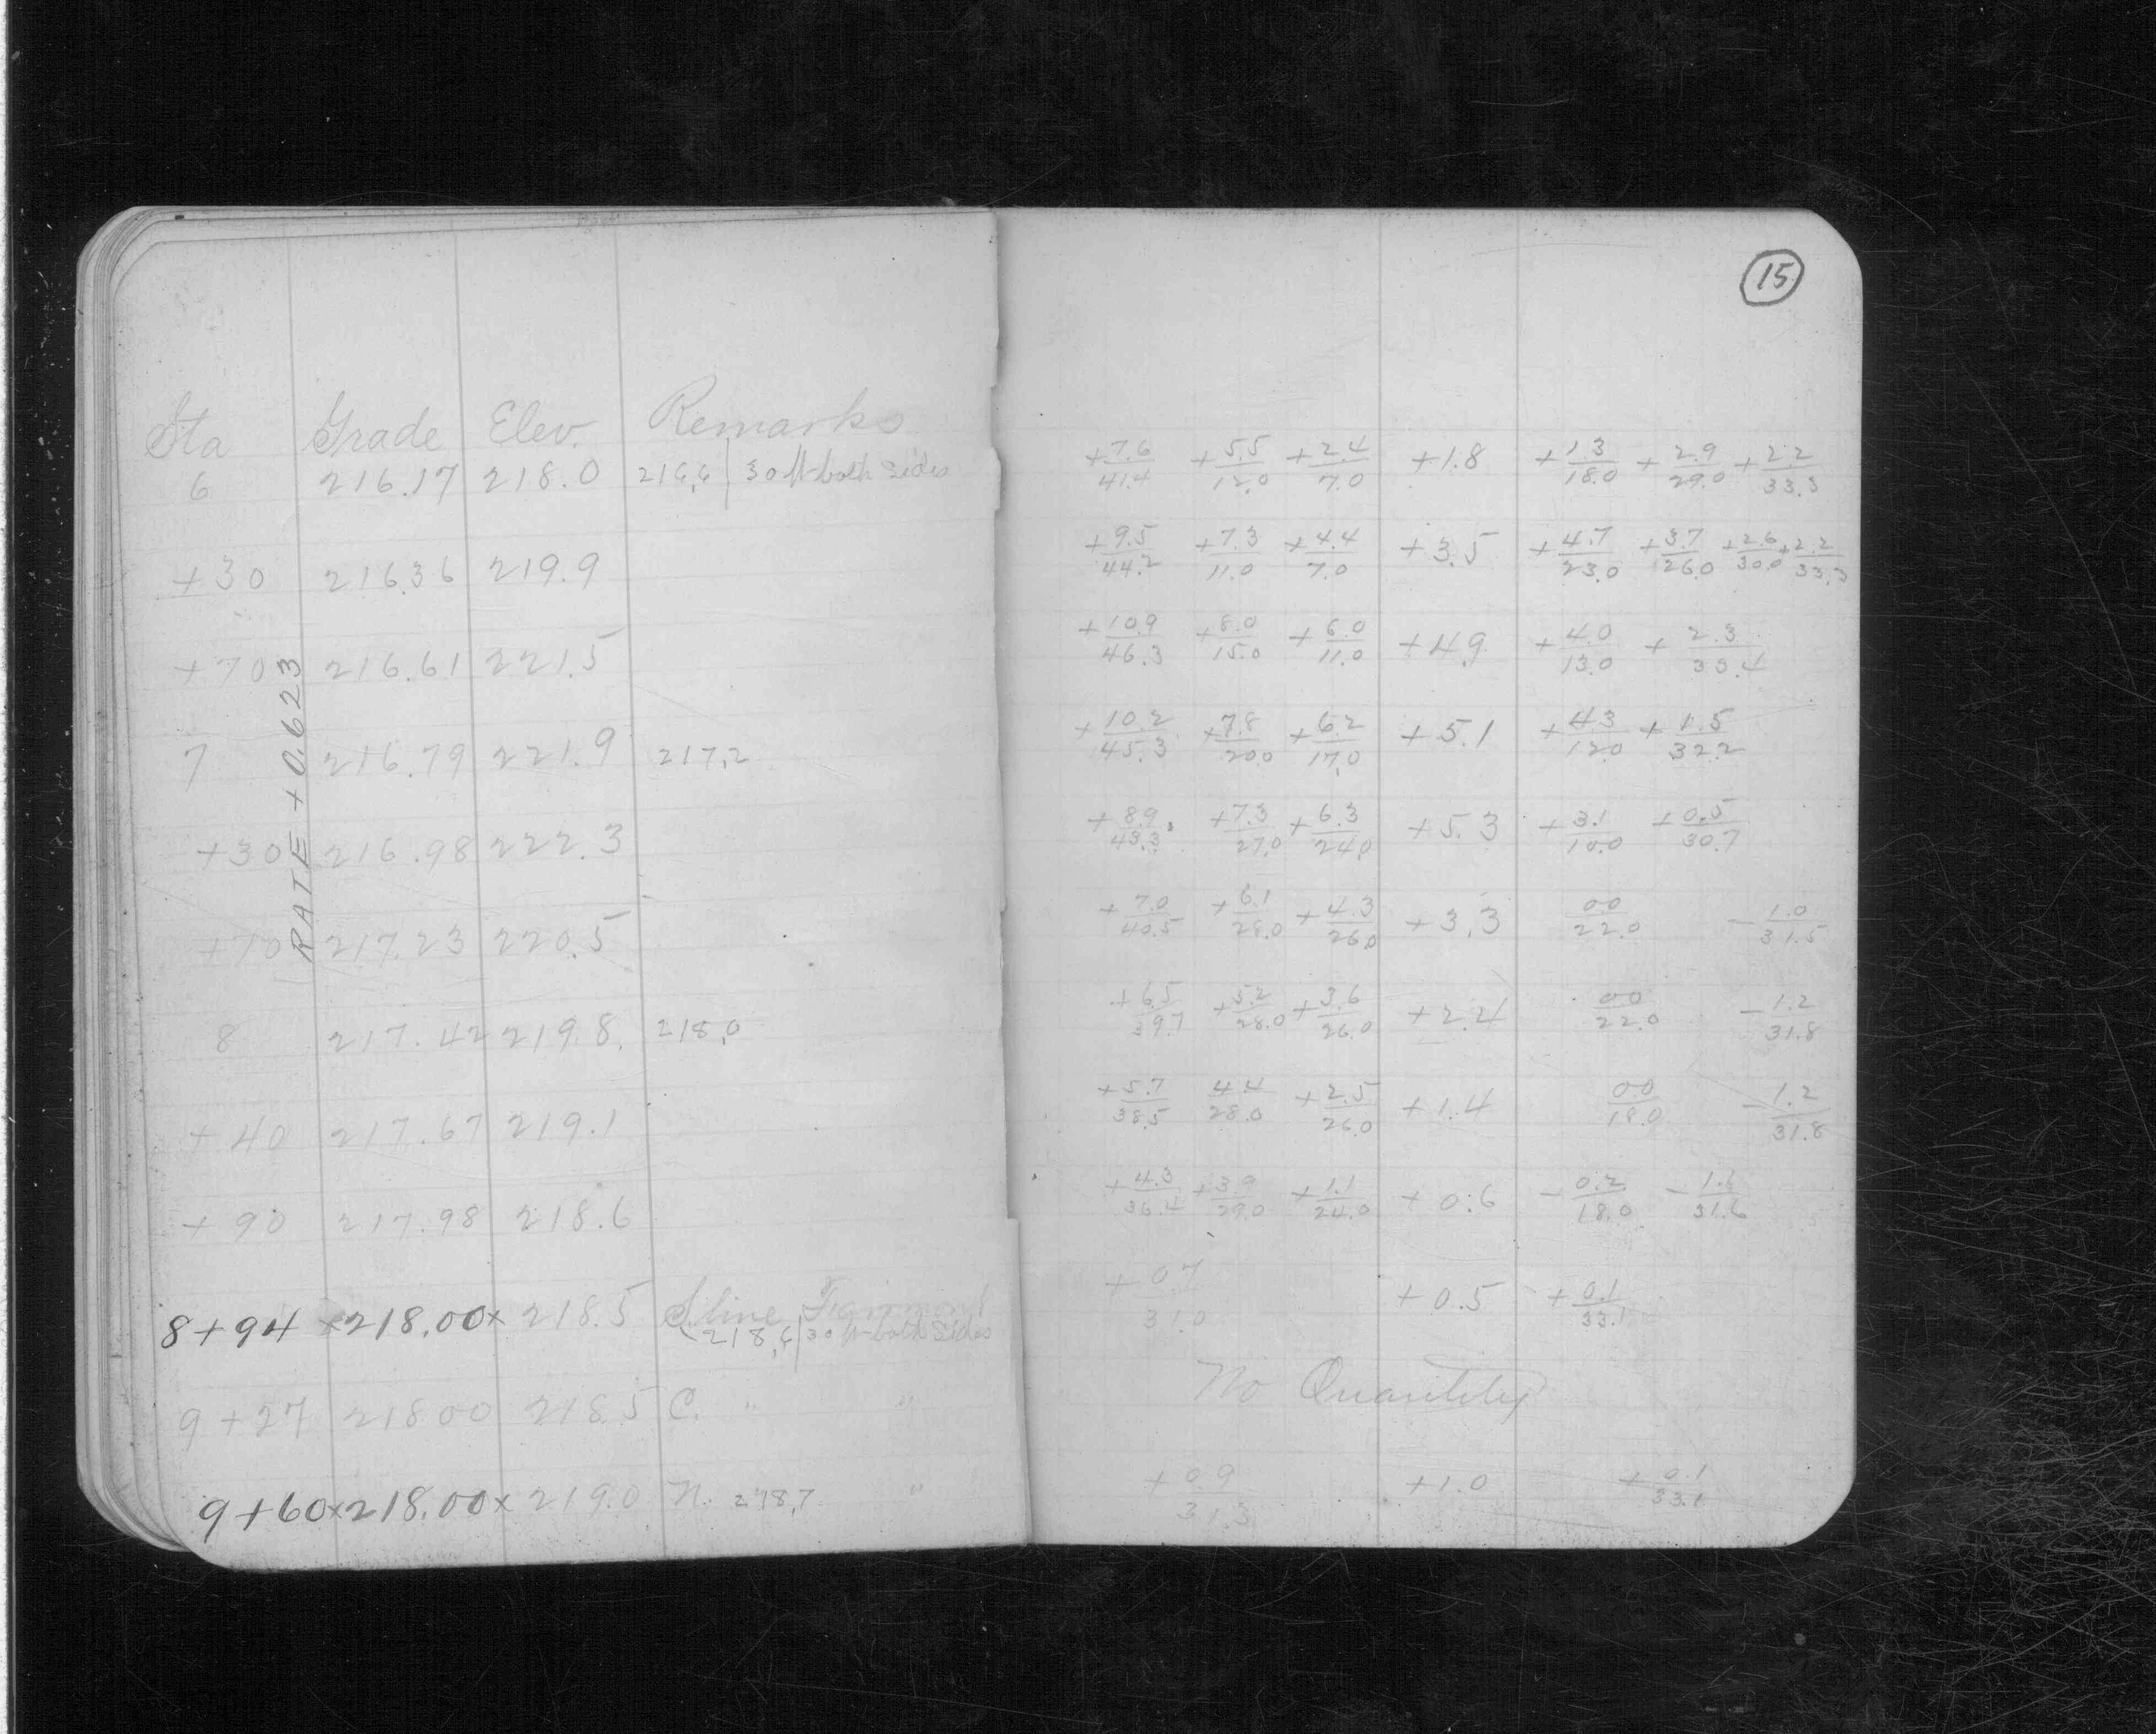 15
Sta Grade Elev. Remarks
6 216.17 218.0 216.6 30 ft both sides
+30 216.36 219.9
+70 216.61 221.5
7 216.79 221.9 217.2
+30 216.98 222.3
+70 217.23 220.5
8 217.42 219.8 218.0
+40 217.67 219.1
+90 217.98 218.6
8+94 x218.00x 218.5 S. line
218.6 30 ft both sides
9+27 218 00 218.5 C. " "
9+60x218.00x 219.0 N. 218.7 "
RATE +0.623
+7.6/41.4 +5.5/12.0 +2.4/7.0 +1.8 +1.3/18.0 +2.9/29.0 +2.2/33.3
+9.5/44.2 +7.3/11.0 +4.4/7.0 +3.5 +4.7/23.0 +3.7/26.0 +2.6/30.0 +2.2/33.3
+10.9/46.3 +8.0/15.0 +6.0/11.0 +4.9 +4.0/13.0 +2.3/33.4
+10.2/45.3 +7.8/20.0 +6.2/17.0 +5.1 +4.3/12.0 +1.5/32.2
+8.9/43.3 +7.3/27.0 +6.3/24.0 +5.3 +3.1/18.0 +0.5/30.7
+7.0/40.5 +6.1/28.0 +4.3/26.0 +3.3 00/22.0 -1.0/31.5
+6.5/39.7 +5.2/28.0 +3.6/26.0 +2.4 00/22.0 -1.2/31.8
+5.7/38.5 4.4/28.0 +2.5/26.0 +1.4 00/18.0 -1.2/31.8
+4.3/36.4 +3.9/29.0 +1.1/24.0 +0.6 -0.2/18.0 -1.1/31.6
+0.7/31.0 +0.5 +0.1/33.1
No Quantity
+0.9/31.3 +1.0 +0.1/33.1